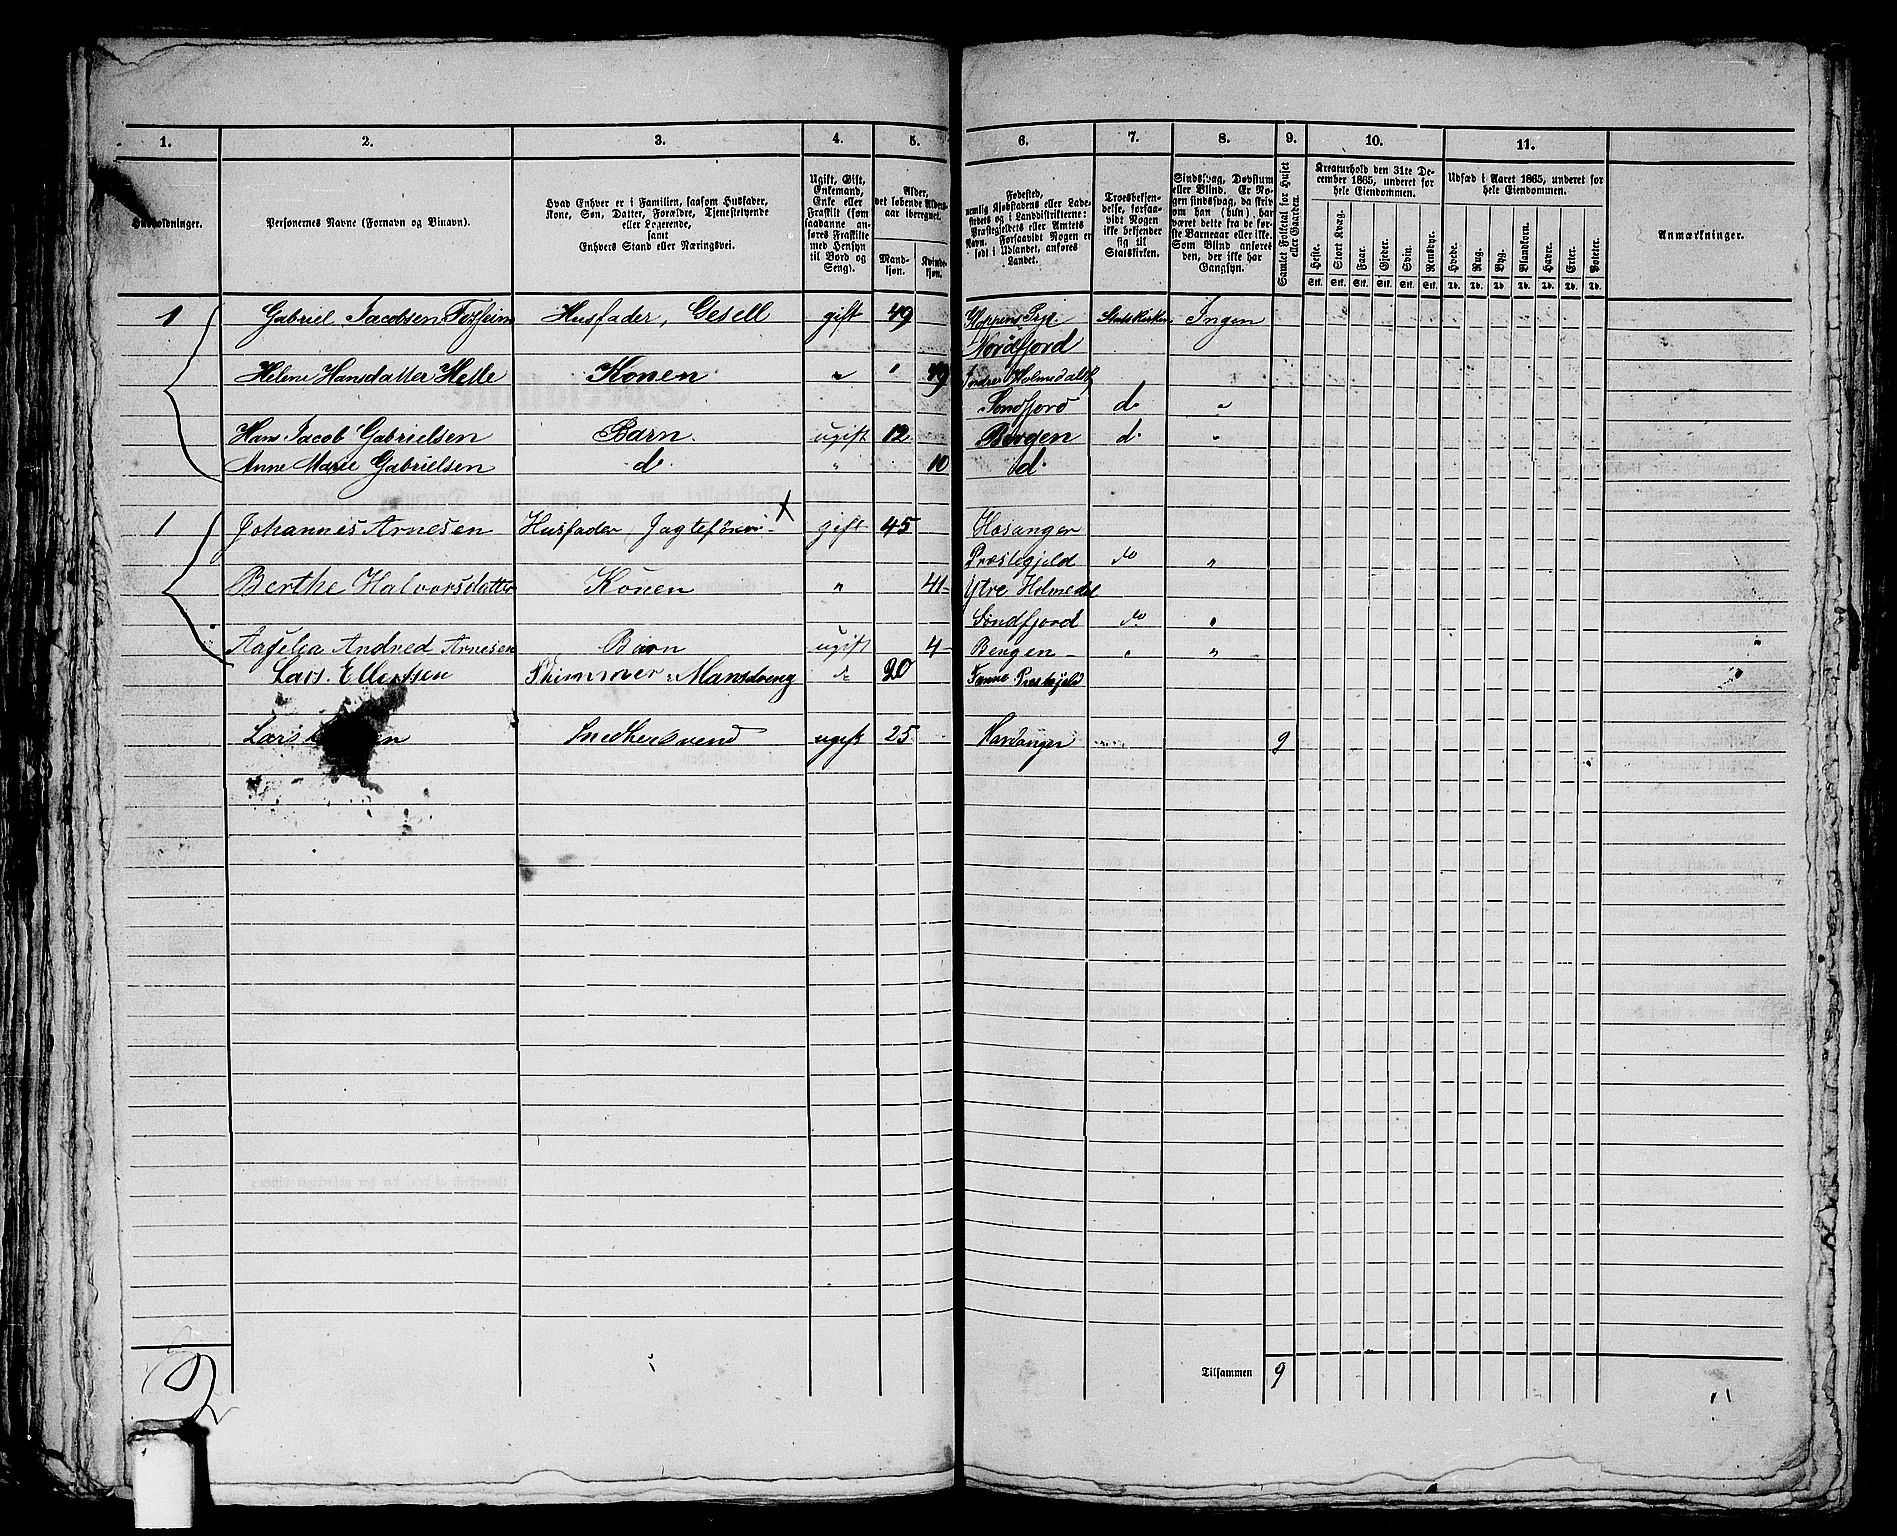 1. 2. 3. 4. 5. 6. 7. 8. 9. 10. 11.
Husholdninger.
Personernes Navne (Fornavn og Binavn).
Hvad Enhver er i Familien, saasom Husfader,
Kone, Søn, Datter, Forældre, Tjenestetyende
eller Logerende,
samt
Enhvers Stand eller Næringsvei.
Ugift, Gift,
Enkemand,
Enke eller
Fraskilt (som
saadanne an-
føres Fraskilte
med Hensyn
til Bord og
Seng).
Alder,
det løbende Alders-
aar iberegnet.
Mand-
kjøn.
Kvinde-
kjøn.
Fødested,
nemlig Kjøbstadens eller Lade-
stedets og i Landdistrikterne:
Præstegjeldets eller Amtets
Navn. Forsaavidt Nogen er
født i Udlandet, anføres
Landet.
Troesbekjen-
delse, forsaa-
vidt Nogen
ikke bekjender
sig til
Statskirken.
Sindssvag, Døvstum
eller Blind. Er No-
gen sindssvag, da skriv
om han (hun) har
været dette fra de før-
ste Barneaar eller ikke.
Som Blind anføres
den, der ikke har
Gangsyn.
Samlet Folketal for Huset
eller Gaarden.
Kreaturhold den 31te De-
cember 1865, underet for
hele Eiendommen.
Heste. Stort Kvæg. Faar. Gjeder. Svin. Rensdyr.
Stk. Stk. Stk. Stk. Stk. Stk.
Udsæd i Aaret 1865, underet for
hele Eiendommen.
Hvede. Rug. Byg. Blandkorn. Havre. Erter. Poteter.
Td. Td. Td. Td. Td. Td. Td.
Anmærkninger.
1 Gabriel Jacobsen Husfader, Gesell gift 49 Statskirken Ingen
Nordfjord
Helene Hansdatter Helle Konen " " 49 Indre Holmedals
Søndfjord d. "
Hans Jacob Gabrielsen Barn. ugift 12 Bergen d. "
Anne Marie Gabrielsen d. " 10 d.
1 Johannes Arnesen Husfader Jagtefører X gift 45 Hosanger
Præstegjeld do "
Berthe Halvorsdatter Konen " 41 Ytre Holmedal
Søndfjord do "
Andrea Arnesen Barn ugift 4 Bergen " "
Lars Ellertsen 20
Lars Snedkersvend ugift 25 Hardanger 9
2
Tilsammen 9